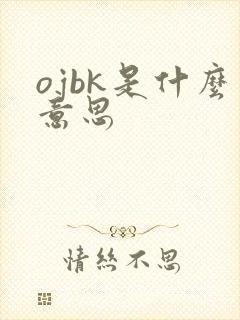 ojbk是什麼
意思
情絲不思